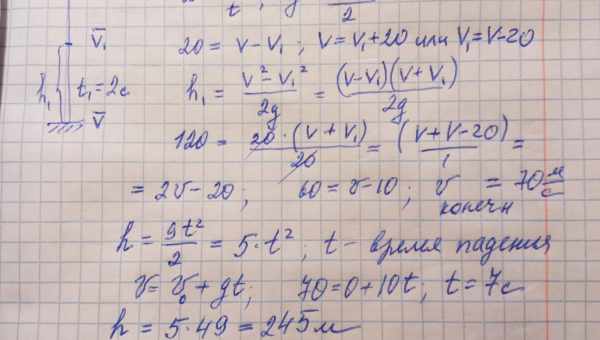 t ; g 2
V̅₁
20 = V - V₁ ; V = V₁ + 20 или V₁ = V - 20
h₁
t₁ = 2с
h₁ = (V² - V₁²)/2g = (V - V₁)(V + V₁)/2g
V̅
120 = 20 · (V + V₁)/20 = (V + V - 20)/1 =
= 2V - 20 ; 60 = V - 10 ; V конечн = 70 м/с
h = gt²/2 = 5 · t² ; t - время падения
V = V₀ + gt ; 70 = 0 + 10t ; t = 7с
h = 5 · 49 = 245 м